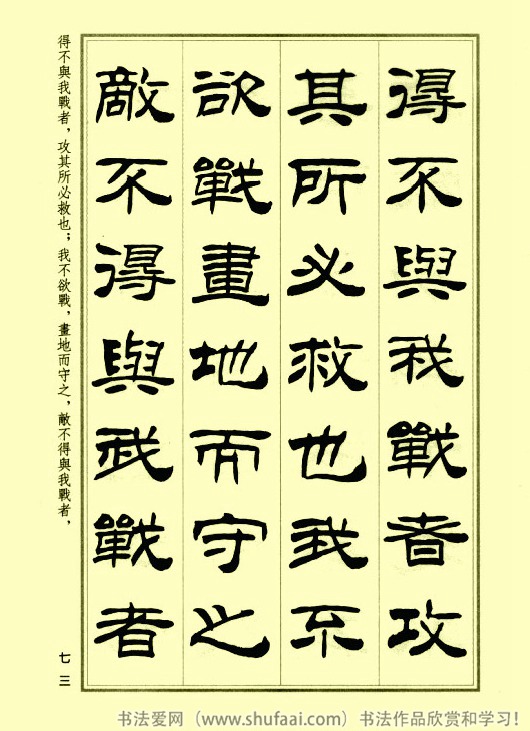 得不與我戰者攻
其所必救也我不
欲戰畫地而守之
敵不得與我戰者
得不與我戰者，攻其所必救也；我不欲戰，畫地而守之，敵不得與我戰者，
七三
书法爱网（www.shufaai.com）书法作品欣赏和学习！